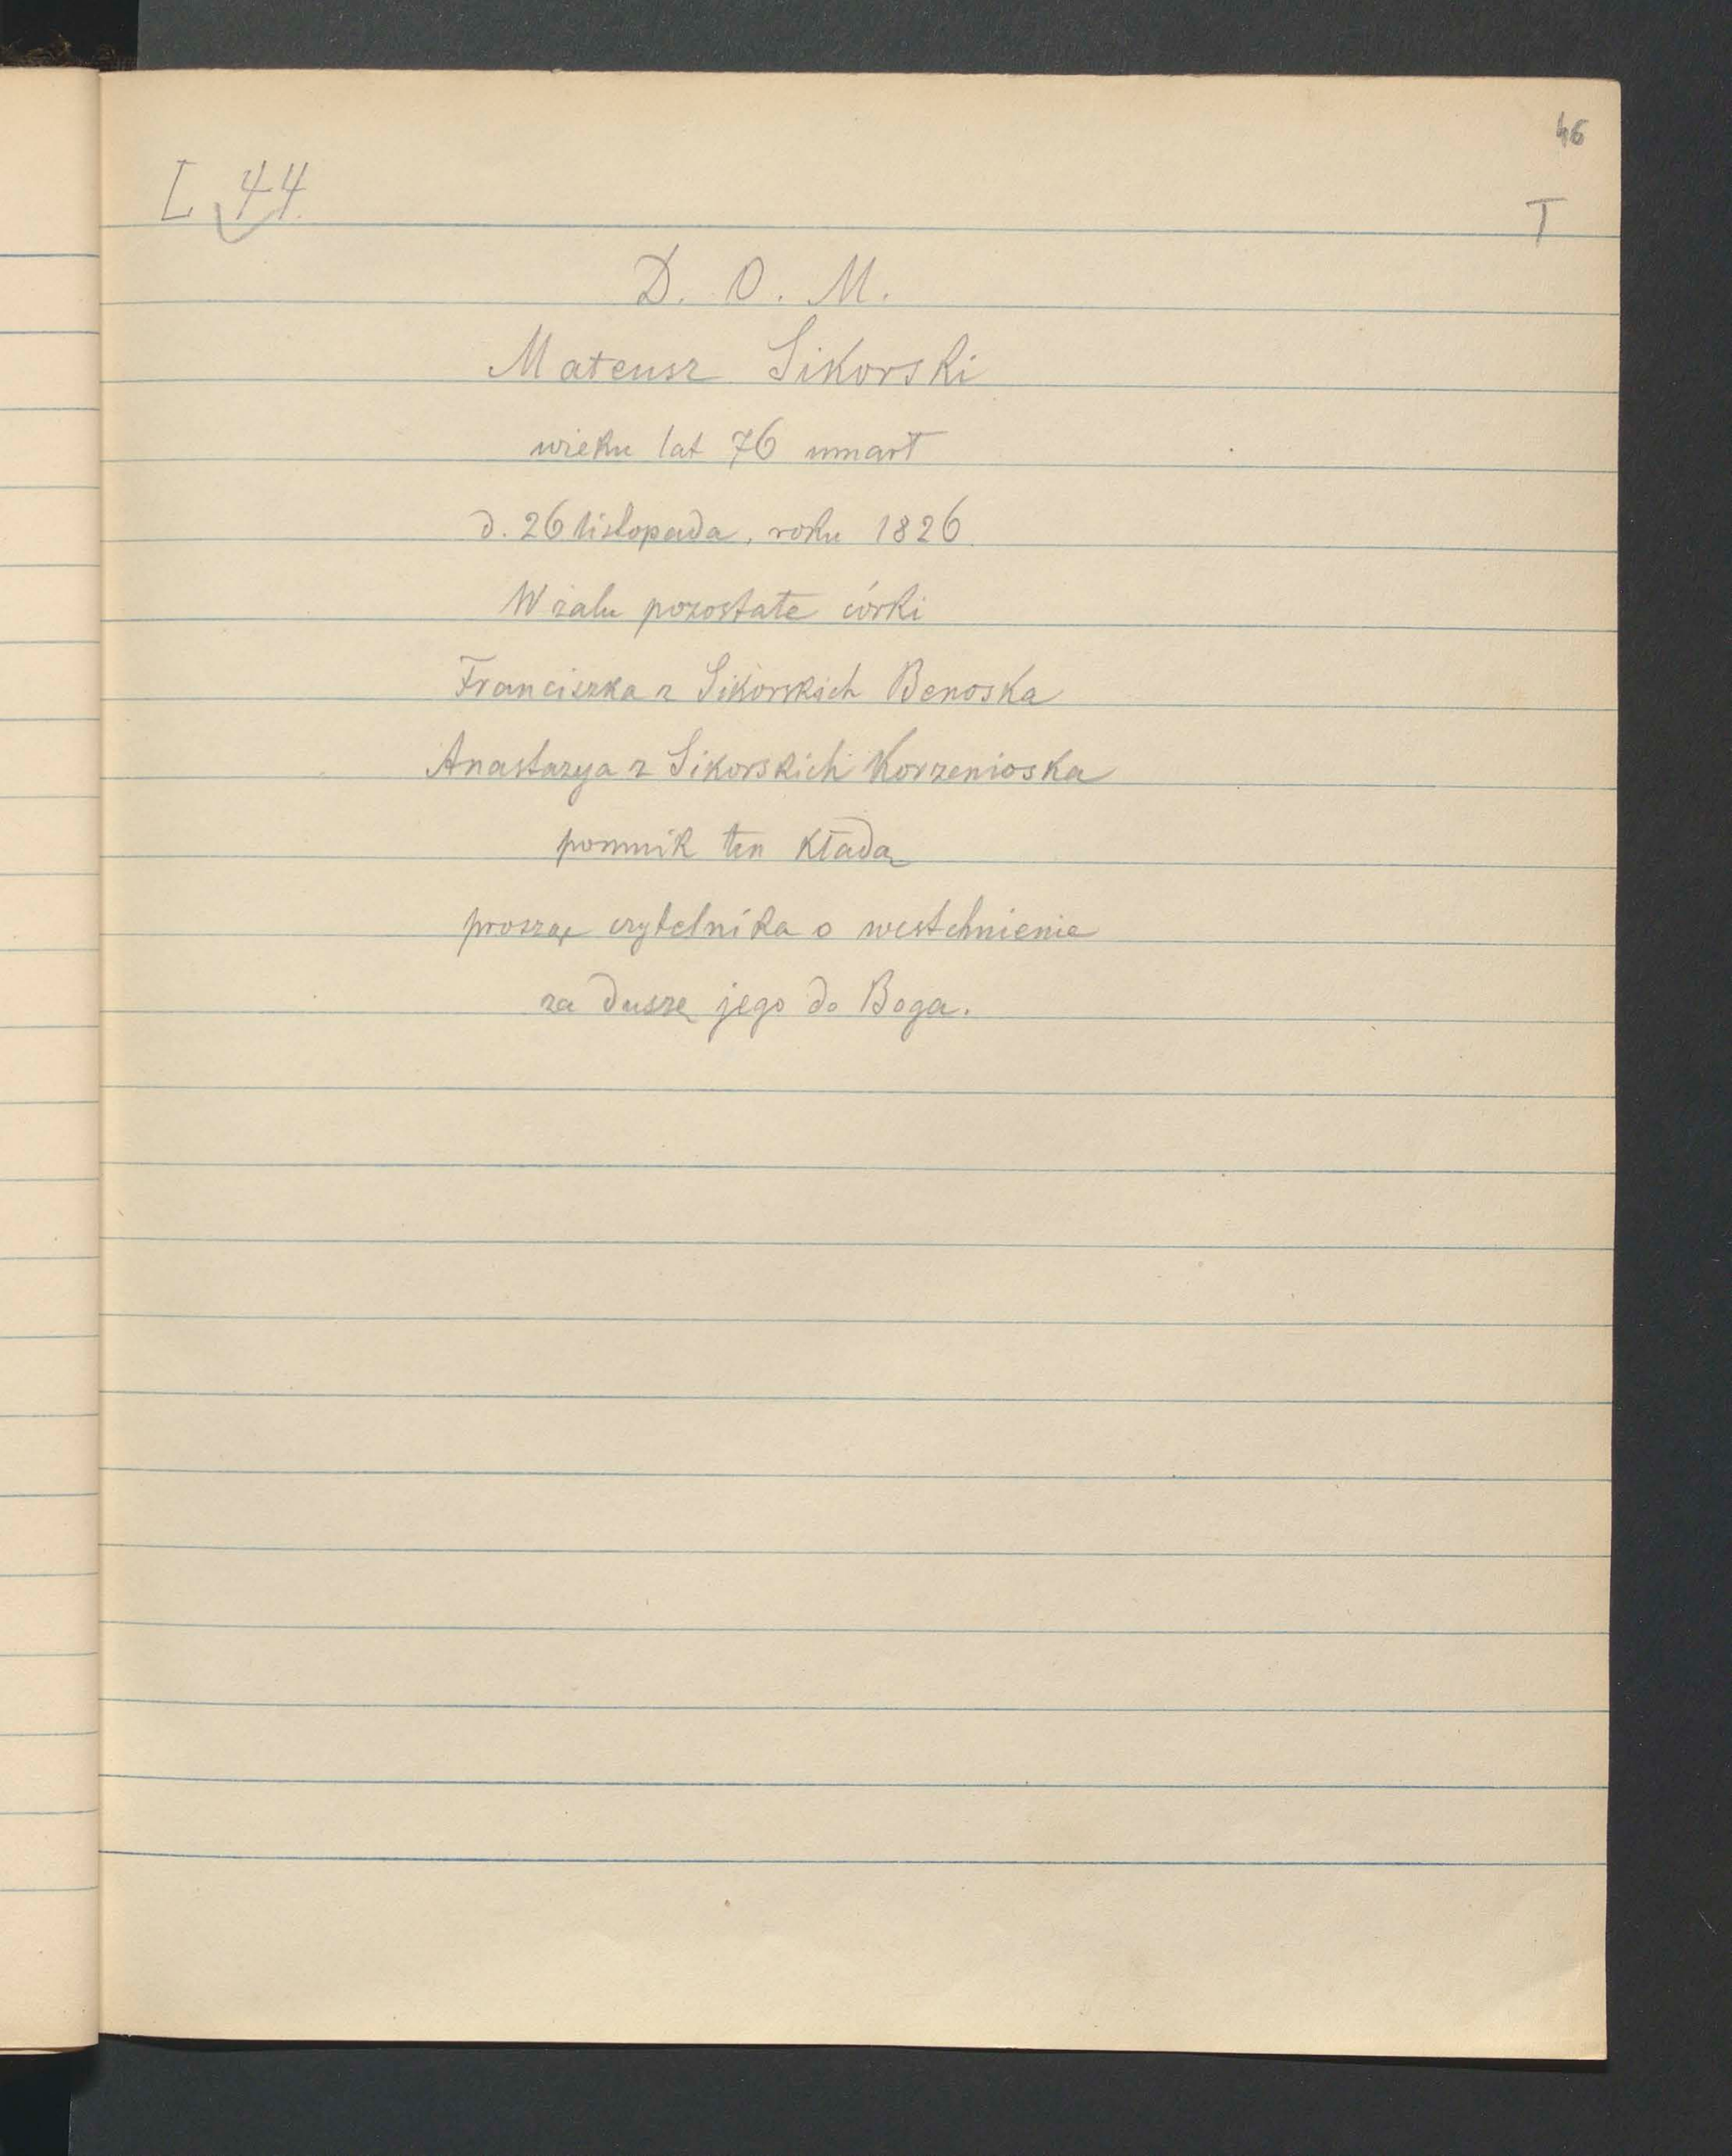 46
L 44.
T
D. O. M.
Mateusz Sikorski
wieku lat 76 umarł
d. 26 listopada, roku 1826.
W żalu pozostałe córki
Franciszka z Sikorskich Benoska
Anastazya z Sikorskich Korzenioska
pomnik ten kładą
prosząc czytelnika o westchnienie
za duszę jego do Boga.